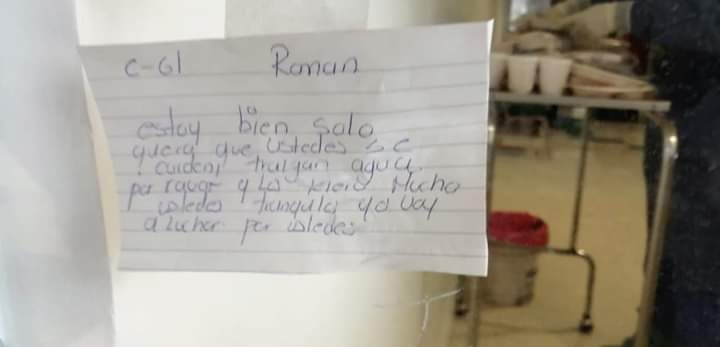 C-61 Roman
estoy bien solo
quería que ustedes se
cuiden, traigan agua
por favor y los quiero Mucho
ustedes tranquilo yo voy
a luchar por ustedes